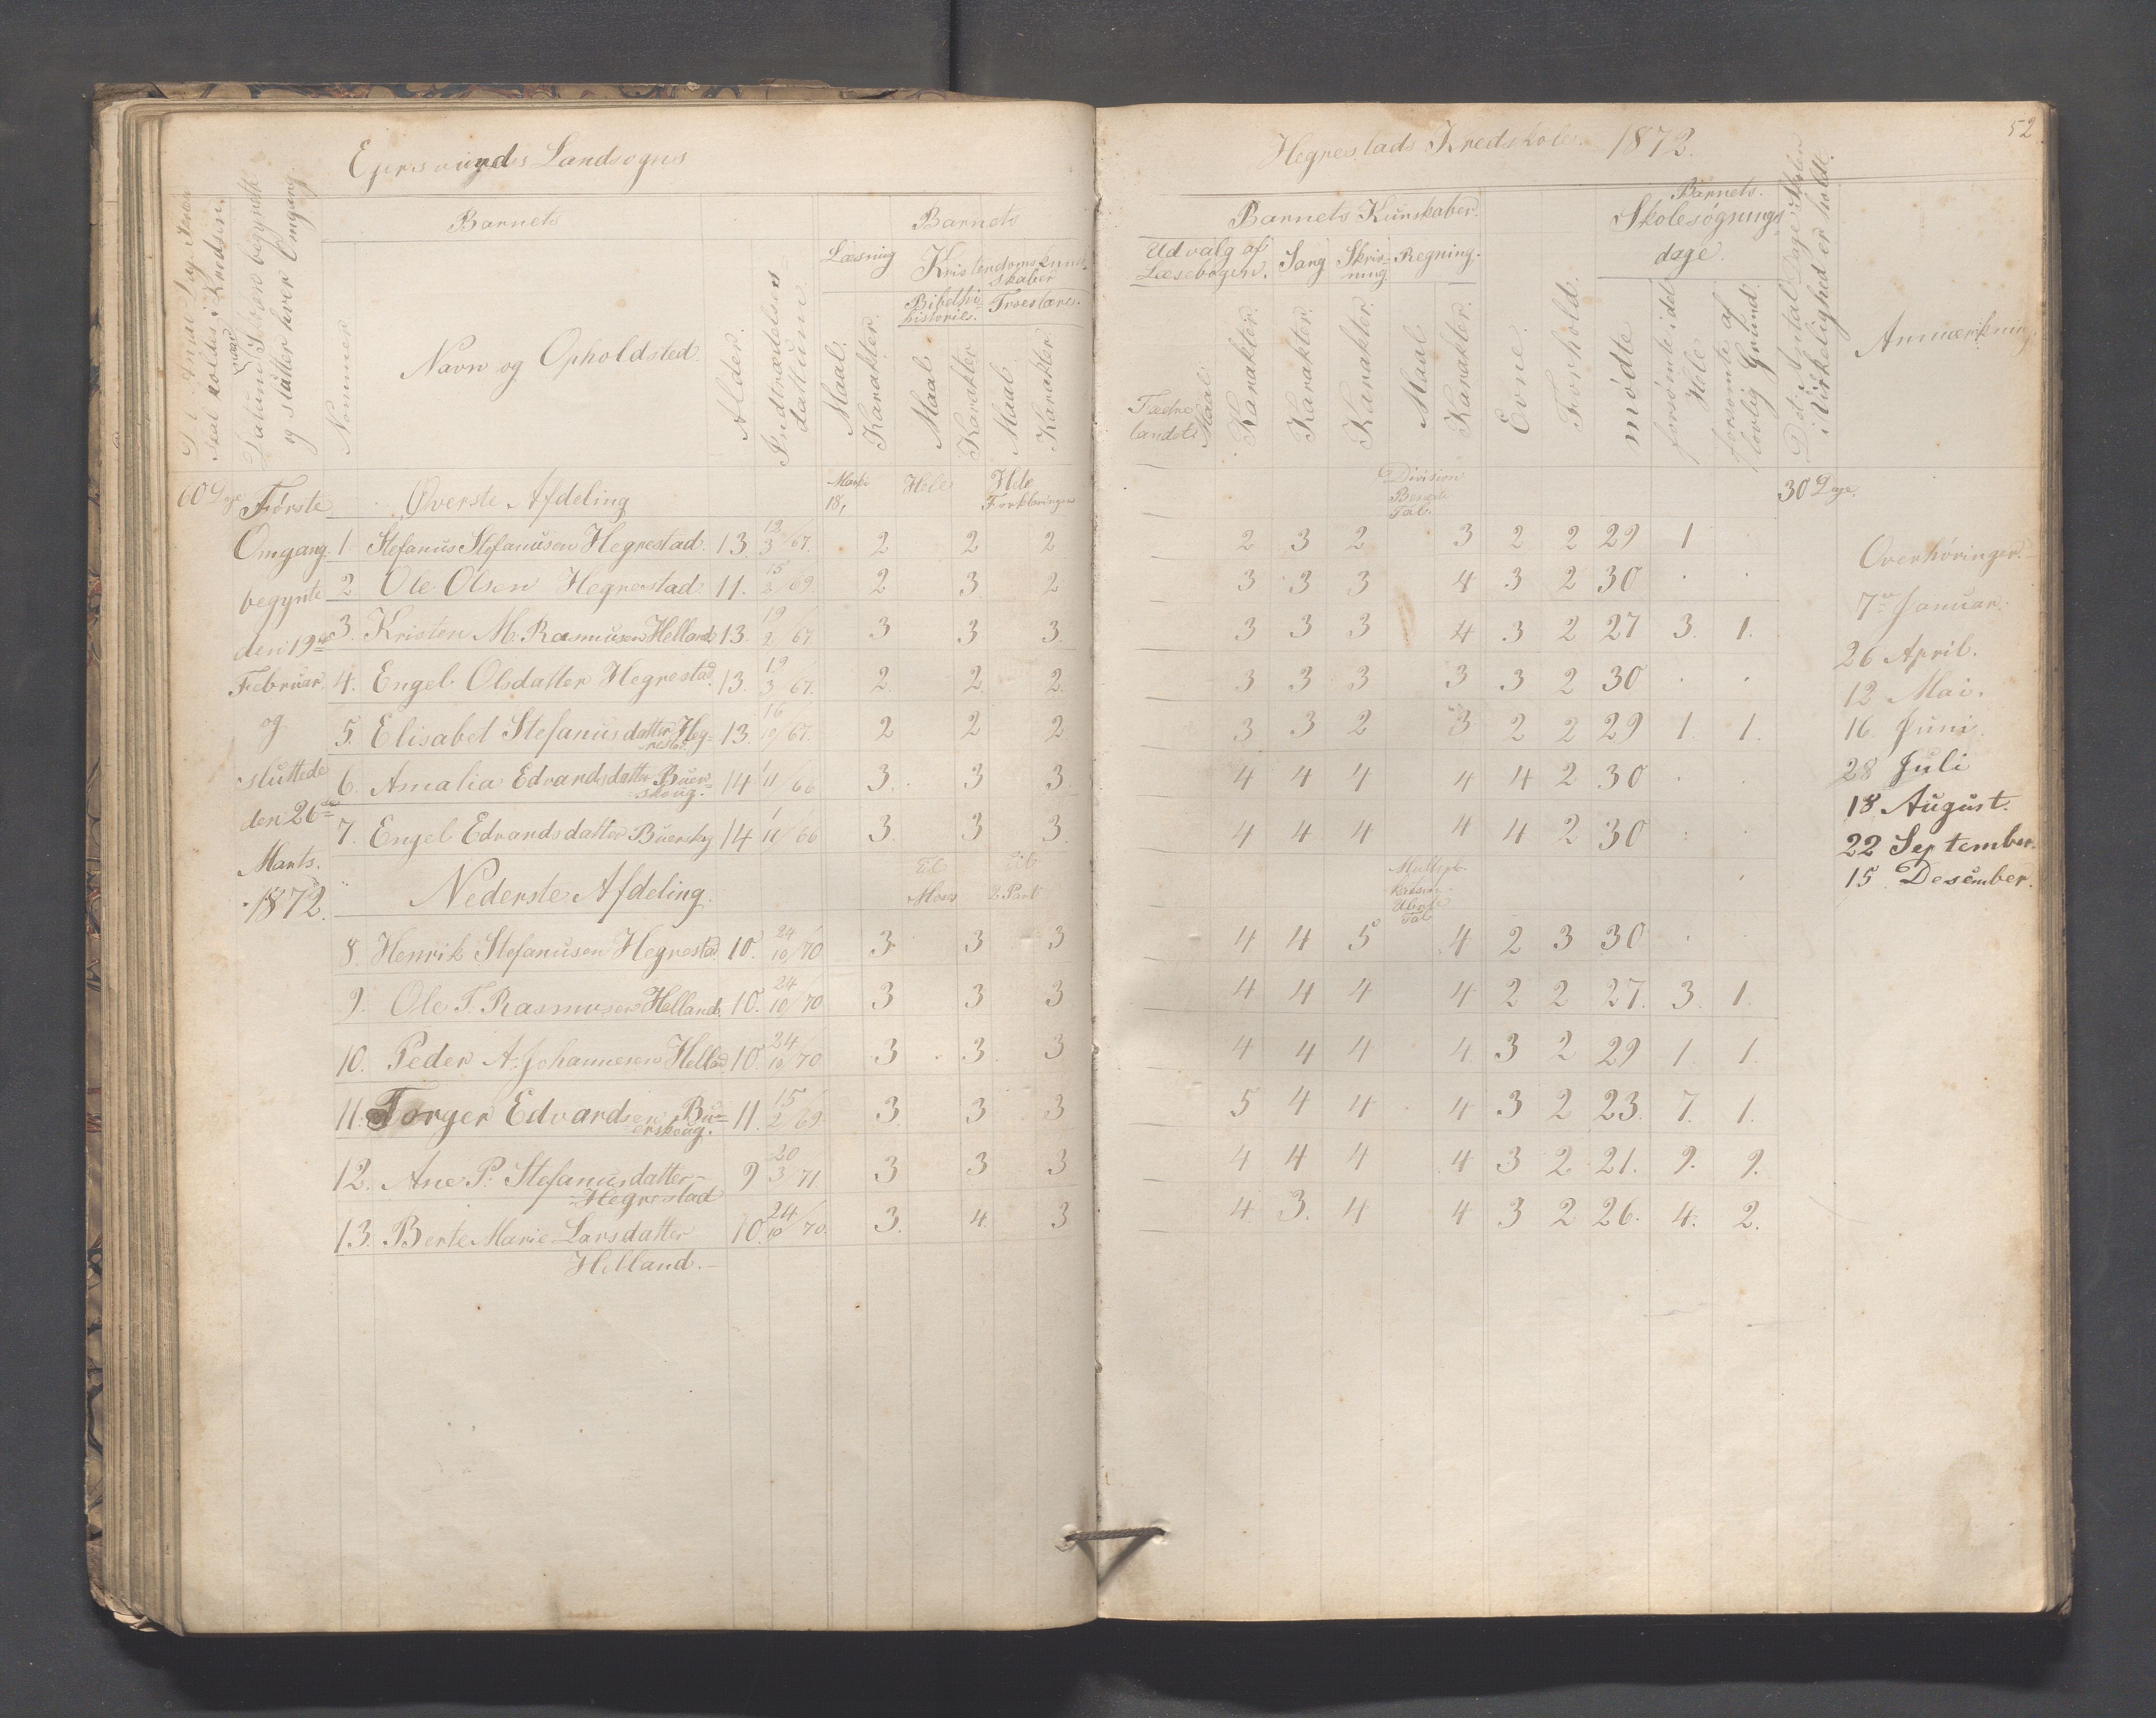 Egersunds Landsogns
Hegrestads Kredskole. 1872.
52
skal holdes i Kredsen.
Datum naar Skolen begyndte
og slutter hver Omgang.
Barnets
Nommer
Navn og Opholdsted.
Alder.
Indtrædelses
datum.
Barnets
Læsning
Maal.
Karakter.
Kristendomskund-
skaber
Bibelhi
histories.
Troeslære.
Maal
Karakter
Maal
Karakter
Barnets Kunskaber.
Udvalg af
Læsebogen.
Sang
Skriv-
ning
Regning.
Fædre
landst.
Maal
Karakter.
Karakter.
Karakter.
Maal
Karakter.
Evne.
Forhold.
Barnets.
Skolesøgnings
dage.
mødte
forsømte i det
Hele
forsømte af
lovlig Grund.
Det Antal Dage Skolen
i Virkelighed er holdt.
Anmærkning.
60 Dage
Første
Omgang.
begynte
den 19de
Februar,
og
sluttede
den 26de
Marts.
1872.
Øverste Afdeling
18,
Hele
Hele
Forklaringen
Division
Tal.
30 Dage.
1 Stefanus Stefanusen Hegrestad. 13. 12/3 67. 2 2 2 2 3 2 3 2 2 29 1
2 Ole Olsen Hegrestad. 11. 15/2 69. 2 3 2 3 3 3 4 3 2 30 . .
3. Kristen M. Rasmusen Helland 13. 19/2 67 3 3 3. 3 3 3 4 3 2 27 3. 1.
4. Engel Olsdatter Hegrestad. 13. 19/3 67. 2. 2. 2. 3 3 3 3 3 2 30 . .
5. Elisabet Stefanusdatter Heg-
restad. 13. 16/10 67. 2 2 2 3 3 2 3 2 2 29 1. 1.
6. Amalia Edvardsdatter Buer-
skoug. 14 1/11 66 3. 3 3 4 4 4 4 4 2 30 . .
7. Engel Edvardsdatter Buerskg 14 1/11 66 3. 3 3. 4 4 4 4 4 2 30 . .
Nederste Afdeling.
til
Moses
til
2 Part
Tal
8. Henrik Stefanusen Hegrestad. 10. 24/10 70 3 3 3 4 4 5 4 2 3 30 . .
9. Ole T. Rasmusen Helland. 10. 24/10 70 3 3 3 4 4 4 4 2 2 27. 3. 1.
10. Peder A. Johannesen Helland 10. 24/10 70 3 3. 3 4 4 4 4. 3 2 29 1. 1.
11. Torger Edvardsen Bu-
erskoug. 11. 15/2 69. 3. 3 3 5 4 4 4 3 2 23. 7. 1.
12. Ane P. Stefanusdatter
Hegrestad 9 20/3 71 3 3 3 4 4 4 4 3 2 21. 9. 9.
13. Berte Marie Larsdatter
Helland. 10. 24/10 70. 3. 4. 3 4 3. 4 4 3 2 26. 4. 2.
Overhøringer.
7de Januar.
26 April.
12 Mai.
16 Juni.
28 Juli
18 August.
22 September.
15 Desember.